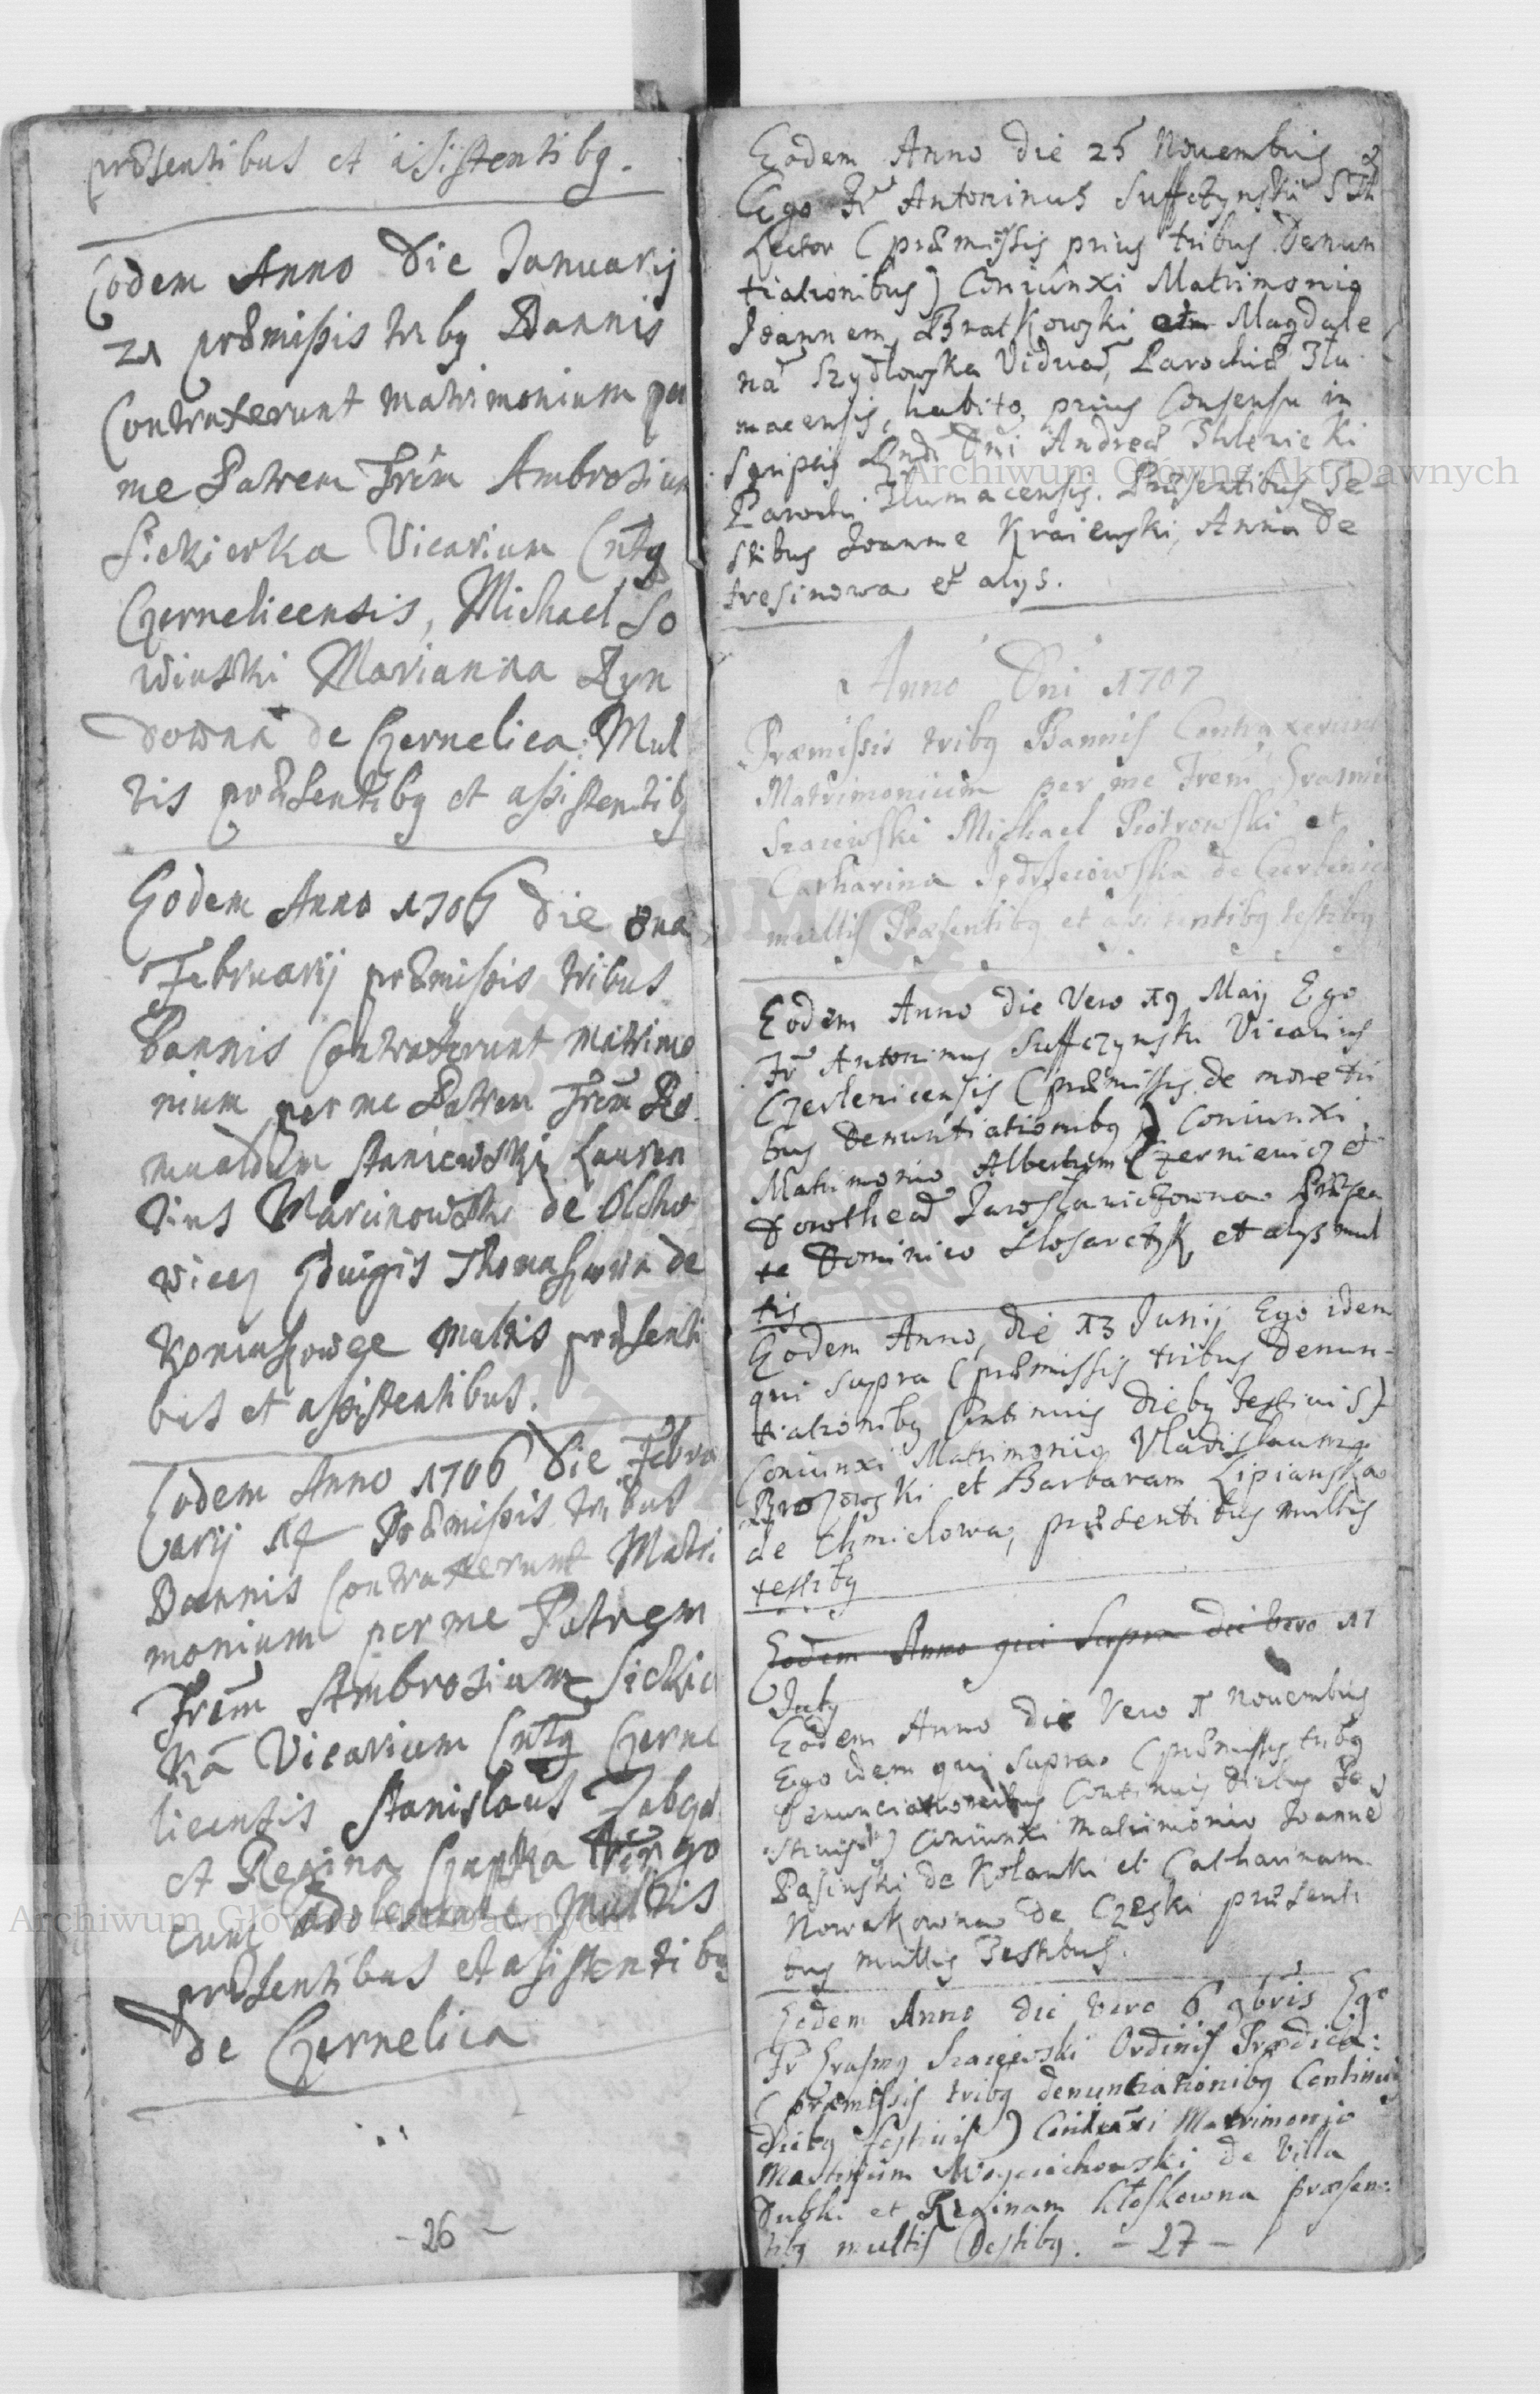 præsentibus et asistentibq.
Eodem Anno Die Januarij
21 præmissis tribq Bannis
Contraxerunt matrimonium per
me Patrem Frem Ambrosium
Siekierka Vicarium Cntq
Czernelicensis, Michael So
winski Marianna Ryn
downa de Czernelica. Mul
tis præsentibq et assistentibq
Eodem Anno 1706 Die
Februarij præmissis tribus
Bannis Contraxerunt matrimo
nium per me Patrem Frem Ro
mualdum Staniewski Lauren
tius Marcinowski de Olcho
wiec Eduigis Thomaszowna de
Koniuszowce Multis præsenti
bus et assistentibus.
Eodem Anno 1706 Die Febru
arij 14 Præmissis tribus
Bannis Contraxerunt Matri
monium per me Patrem
Frem Ambrosium Siekier
ka Vicarium Cntq Czerne
licensis Stanislaus
et Regina Czapka Virgo
cum adolescente Multis
præsentibus et asistentibq
de Czernelica
- 26 -
Eodem Anno die 25 Novembris
Ego Fr Antoninus Suffczynski STh
Lector (præmissis prius tribus Denun
tiationibus) Coniunxi Matrimonio
Joannem Bratkowski Magdale
nã Szydlowska Viduã, Parochiæ Tlu
macensis, habito prius Consensu in
scriptis Rndi Dni Andreæ
Parochi Tlumacensis. Præsentibus Te
stibus Joanne Kraiewski, Anna De
tresinowa et alys.
Anno Dni 1707
Præmissis tribq Bannis Contraxerunt
Matrimonium per me Frem Erasmu
Szaiewski Michael Piotrowski et
Catharina de
multis Præsentibq et asistentibq testibq
Eodem Anno die Vero 19 Maij Ego
Fr Antoninus Suffczynski Vicarius
Czerlenicensis (præmissis de more tri
bus Denuntiationibq) Coniunxi
Matrimonio Albertum Czerniewicz et
Dorotheã Jaroslawiczowna Præsen
te Dominico Slosarczyk et alys mul
tis
Eodem Anno, die 13 Junij Ego idem
qui supra (præmissis tribus Denun-
tiationibq Continuis diebq festiuis)
Coniunxi Matrimonio Vladislaum
Brozowski et Barbaram Lipianska
de Chmielowa, præsentibus multis
testibq
Eodem Anno qui Supra die vero 17
July
Eodem Anno die Vero 1 Nouembris
Ego idem qui supra (præmissis tribq
Denunciationibus Continuis diebus Fe
stiuis) Coniunxi Matrimonio Joanne
Pasinski de Kolanki et Catharinam
Nowakowna de Czeski præsenti
bus multis Testibus.
Eodem Anno die vero 6 9bris Ego
Fr Erasmq Szaiewski Ordinis Prædica:
(præmissis tribq denuntiationibq Continuis
diebq festiuis) Coniunxi Matrimonio
Martinum Woyciechowski de Villa
Dubki et Reginam Kloskowna præsen:
tibq multis Testibq. - 27 -
Archiwum Główne Akt Dawnych
Archiwum Główne Akt Dawnych